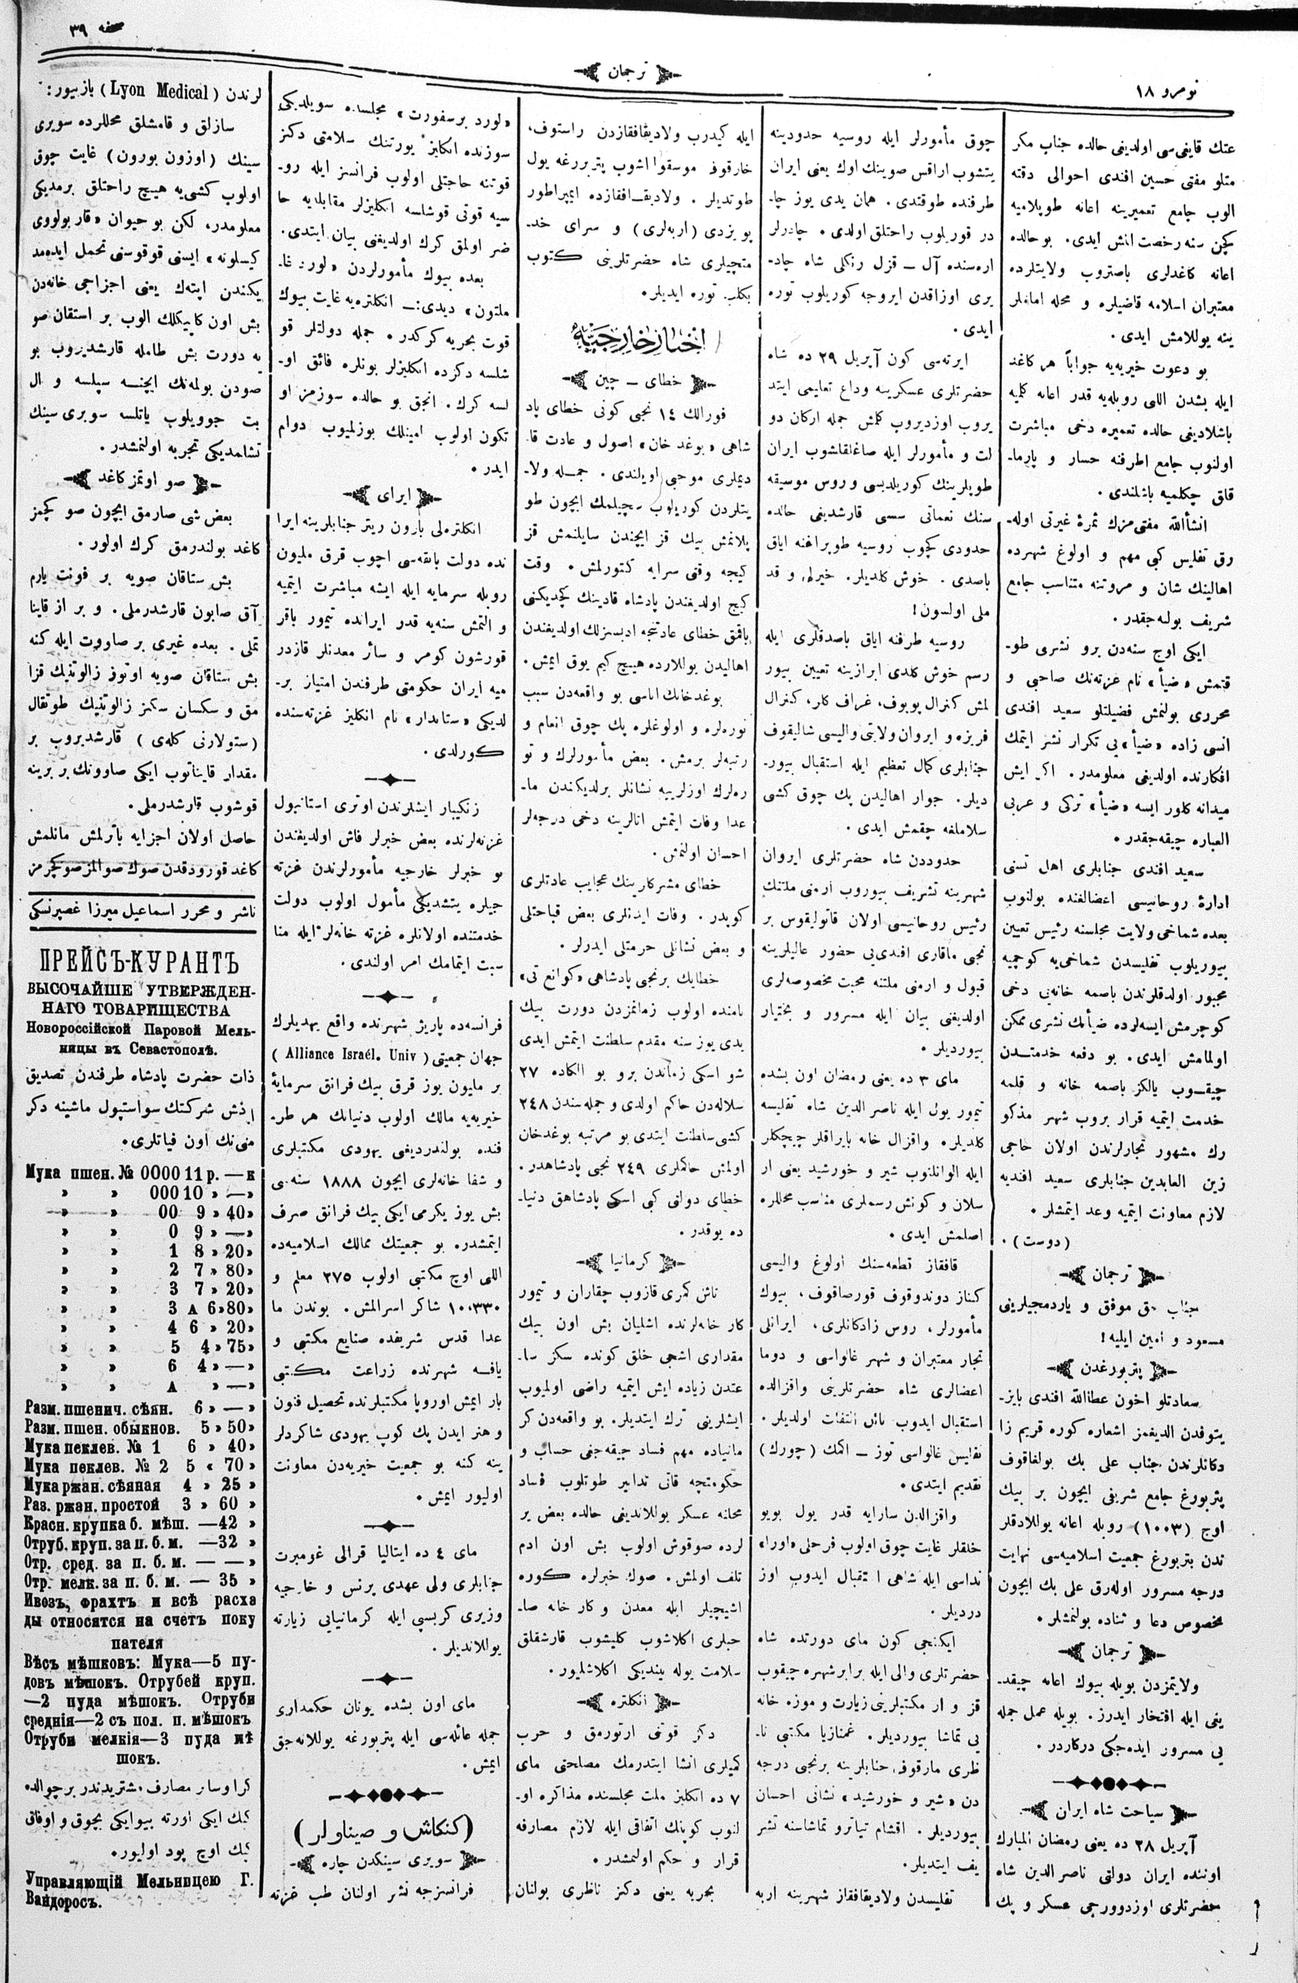 نومرو ١٨
ترجمان
صحفه ٣٩
عتك قاپی‌سی اولدیغی حالده جناب مكر
متلو مفتی حسین افندی احوالی دقته
الوب جامع تعمیرینه اعانه طوپلامیه
كچن سنه رخصت آلمش ایدی. بو حالده
اعانه كاغدلری باصتروب ولایتلرده
معتبران اسلامه قاضیلره و محله اماملر
ینه یوللامش ایدی.
بو دعوت خیریه‌یه جواباً هر كاغد
ایله بشدن اللی روبله‌یه قدر اعانه كلمیه
باشلادیغی حالده تعمیره دخی مباشرت
اولنوب جامع اطرفنه حسار و پارما-
قلق چكلمیه باشلندی.
انشأالله مفتی‌مزك ثمرهٔ غیرتی اوله-
رق تفلیس كبی مهم و اولوغ شهرده
اهالینك شان و مروتنه متناسب جامع
شریف بوله‌جقدر.
ایكی اوچ سنه‌دن برو نشری طو-
قتمش «ضیأ» نام غزته‌نك صاحبی و
محرری بولنمش فضیلتلو سعید افندی
انسی زاده «ضیأ» یی تكرار نشر ایتمك
افكارنده اولدیغی معلومدر.
میدانه كلور ایسه «ضیأ» تركی و عربی
العباره چیقه‌جقدر.
سعید افندی جنابلری اهل تسنی
ادارهٔ روحانیسی اعضالغنده بولنوب
بعده شماخی ولایت مجلسنه رئیس تعیین
بیوریلوب تفلیسدن شماخی‌یه كوچمیه
مجبور اولدقلرندن باصمه خانه‌یی دخی
كوچرمش ایسه‌لرده ضیأنك نشری ممكن
اولمامش ایدی. بو دفعه خدمتدن
چیقوب یالكز باصمه خانه و قلمه
خدمت ایتمیه قرار بروب شهر مذكو
رك مشهور تجارلرندن اولان حاجی
زین العابدین جنابلری سعید افندیه
لازم معاونت ایتمیه وعد ایتمشلر.
(دوست).
ترجمان
جناب حق موفق و یاردمجیلرینی
مسعود و امین ایلیه!
پتربورغدن
سعادتلو اخون عطاالله افندی بایز-
یتوفدن الدیغمز اشعاره كوره قریم زا
دكانلرندن جناب علی بك بولغاقوف
پتربورغ جامع شریفی ایچون بر بیك
اوچ (١٠٠٣) روبله اعانه یوللادقلر
ندن پتربورغ جمعیت اسلامیه‌سی نهایت
درجه مسرور اوله‌رق علی بك ایچون
مخصوص دعا و ثناده بولنمشلر.
ترجمان
ولایتمزدن بویله بیوك اعانه چیقد-
یغی ایله افتخار ایدرز. بویله عمل جمله
یی مسرور ایده‌جكی دركاردر.
سیاحت شاه ایران
آپریل ٢٨ ده یعنی رمضان المبارك
اونئده ایران دولتی ناصر الدین شاه
حضرتلری اوزدوورجی عسكر و پك
چوق مأمورلر ایله روسیه حدودینه
یتشوب اراقس صوینك اوك یعنی ایران
طرفنده طوقتدی. همان یدی یوز چا-
در قوریلوب راحتلق اولدی. چادرلر
اره‌سنده آل ــ قزل رنكلی شاه چاد-
یری اوزاقدن ایروجه كوریلوب توره
ایدی.
ایرته‌سی كون آپریل ٢٩ ده شاه
حضرتلری عسكرینه وداع تعلیمی ایتد
یروب اوزدیروب كلمش جمله اركان دو
لت و مأمورلر ایله صاغلقلاشوب ایران
طوپلرینك كوریلدیسی و روس موسیقه
سنك نغماتی سسی قارشدیغی حالده
حدودی كچوب روسیه طوپراغنه ایاق
باصدی. خوش كلدیلر. خیرلی و قد
ملی اولسون!
روسیه طرفنه ایاق باصدقلری ایله
رسم خوش كلدی ابرازینه تعیین بیور
لمش كنرال پوپوف، غراف كلر، كنرال
فریزه و ایروان ولایتی والیسی شالیقوف
جنابلری كمال تعظیم ایله استقبال بیور-
دیلر. جوار اهالیدن پك چوق كشی
سلاملغه چقمش ایدی.
حدوددن شاه حضرتلری ایروان
شهرینه تشریف بیوروب ارمنی ملتنك
رئیس روحانیسی اولان قاتولیقوس بر
نجی ماقاری افندی‌یی حضور عالیلرینه
قبول و ارمنی ملتنه محبت مخصوصه‌لری
اولدیغنی بیان ایله مسرور و بختیار
بیوردیلر.
مای ٣ ده یعنی رمضان اون بشده
تیمور یول ایله ناصر الدین شاه تفلیسه
كلدیلر. واقزال خانه بایراقلر چیچكلر
ایله الوانلنوب شیر و خورشید یعنی ار
سلان و كونش رسملری مناسب محللره
اصلمش ایدی.
قافقاز قطعه‌سنك اولوغ والیسی
كناز دوندوقوف قورصاقوف، بیوك
مأمورلر، روس زادكانلری، ایرانلی
تجار معتبران و شهر غالواسی و دوما
اعضالری شاه حضرتلرینی واقزالده
استقبال ایدوب نائل التفات اولدیلر.
تفلیس غالواسی توز ــ اتمك (چورك)
تقدیم ایتدی.
واقزالدن سارایه قدر یول بویو
خلقلر غایت چوق اولوب فرحلی «اورا»
نداسی ایله شاهی استقبال ایدوب اوز
دردیلر.
ایكنجی كون مای دورتده شاه
حضرتلری والی ایله برابر شهره چیقوب
قز و ار مكتبلرینی زیارت و موزه خانه
یی تماشا بیوردیلر. غمنازیا مكتبی نا-
ظری مارقوف جنابلرینه برنجی درجه
دن «شیر و خورشید» نشانی احسان
بیوردیلر. اقشام تیاترو تماشاسنه تشر
یف ایتدیلر.
تفلیسدن ولادیقافقاز شهرینه اربه
ایله كیدرب ولادیقافقازدن راستوف،
خارقوف موسقوا اشوب پتربورغه یول
طوتدیلر. ولادیقافقازده ایمپراطور
یو یزدی (اربه‌لری) و سرای خد-
متچیلری شاه حضرتلرینی كتوب
بكلب توره ایدیلر.
اخبار خارجیه
خطای ــ چین
فورالك ١٤ نجی كونی خطای پاد
شاهی «بوغد خان» اصول و عادت قا-
دیملری موجبی اویلندی. جمله ولا-
یتلردن كوریلوب سچیلمك ایچون طو
پلانمش بیك قز ایچندن سایلنمش قز
كیجه وقتی سرایه كتورلمش. وقت
كیچ اولدیغندن پادشاه قادینك كچدیكنی
باقمق خطای عادتنجه ادبسزلك اولدیغندن
اهالیدن یوللارده هیچ كیم یوق ایمش.
بوغدخانك اناسی بو واقعه‌دن سبب
توره‌لره و اولوغلره پك چوق انعام و
رتبه‌لر برمش. بعض مأمورلرك و تو
ره‌لرك اوزلرینه نشانلر برلدیكندن ما-
عدا وفات ایتمش اتالرینه دخی درجه‌لر
احسان اولنمش.
خطای مشركارینك عجایب عادتلری
كوپدر. وفات ایدنلری بعض قباحتلی
و بعض نشانلی حرمتلی ایدرلر.
خطاینك برنجی پادشاهی «كوانع تی»
نامنده اولوب زمانمزدن دورت بیك
یدی یوز سنه مقدم سلطنت ایتمش ایدی
شو اسكی زماندن برو بو الكاده ٢٧
سلاله‌دن حاكم اولدی و جمله‌سندن ٢٤٨
كشی سلطنت ایتدی بو مرتبه بوغدخان
اولمش حاكملری ٢٤٩ نجی پادشاهدر.
خطای دولتی كبی اسكی پادشاهق دنیا-
ده یوقدر.
كرمانیا
تاش كمری قازوب چقاران و تیمور
كار خانه‌لرنده اشلیان بش اون بیك
مقداری اشچی خلق كونده سكز سا-
عتدن زیاده ایش ایتمیه راضی اولمیوب
ایشلرینی ترك ایتدیلر. بو واقعه‌دن كر
مانیاده مهم فساد چیقه‌جغی حساب و
حكومتجه قاتی تدابیر طوتلوب فساد
محلنه عسكر یوللاندیغی حالده بعض یر
لرده صوقوش اولوب بش اون ادم
تلف اولمش. صوك خبرلره كوره
اشیچیلر ایله معدن و كار خانه صا-
حبلری اكلاشوب كلیشوب قارشقلق
سلامت یوله یندیكی اكلاشلیور.
انكلتره
دكز قوتنی ارتورمق و حرب
كمیلری انشا ایتدرمك مصلحتی مای
٧ ده انكلیز ملت مجلسنده مذاكره او-
لنوب كوپلك اتفاقی ایله لازم مصارفه
قرار و حكم اولنمشدر.
بحریه یعنی دكز ناظری بولنان
«لورد برسفورت» مجلسده سویلدیكی
سوزنده انكلیز یورتنك سلامتی دكز
قوتنه حاجتلی اولوب فرانسز ایله رو-
سیه قوتی قوشاسه انكلیزلر مقابله‌یه حا
ضر اولمق كرك اولدیغنی بیان ایتدی.
بعده بیوك مأمورلردن «لورد غا-
ملتون» دیدی:ــ انكلتره‌یه غایت بیوك
قوت بحریه كركدر. جمله دولتلر قو
شلسه دكزده انكلیزلر بونلره فائق او-
لسه كرك. انجق بو حالده سوزمز او
تكون اولوب امینلك بوزلمیوب دوام
ایدر.
ایرای
انكلتره‌لی بارون ریتر جنابلرینه ایرا
نده دولت بانقه‌سی اچوب قرق ملیون
روبله سرمایه ایله ایشه مباشرت ایتمیه
و التمش سنه‌یه قدر ایرانده تیمور باقر
قورشون كومر و سائر معدنلر قازدر
میه ایران حكومتی طرفندن امتیاز بر-
لدیكی «ستاندار» نام انكلیز غزته‌سنده
كورلدی.
زنكیبار ایشلرندن اوتری استانبول
غزته‌لرنده بعض خبرلر فاش اولدیغندن
بو خبرلر خارجیه مأمورلرندن غزته
جیلره یتشدیكی مأمول اولوب دولت
خدمتنده اولانلره غزته خانه‌لر ایله منا
سبت ایتمامك امر اولندی.
فرانسه‌ده پاریز شهرنده واقع یهدیلرك
جهان جمعیتی (Alliance Israél. Univ)
بر ملیون یوز قرق بیك فرانق سرمایهٔ
خیریه‌یه مالك اولوب دنیانك هر طر-
فنده بولندردیغی یهودی مكتبلری
و شفا خانه‌لری ایچون ١٨٨٨ سنه‌سی
بش یوز یكرمی ایكی بیك فرانق صرف
ایتمشدر. بو جمعیتك ممالك اسلامیه‌ده
اللی اوچ مكتبی اولوب ٢٧٥ معلم و
١٠،٣٣٠ شاكر اسرالمش. بوندن ما
عدا قدس شریفده صنایع مكتبی و
یافه شهرنده زراعت مكتبی
بار ایمش اوروپا مكتبلرنده تحصیل فنون
و هنر ایدن پك كوپ یهودی شاكردلر
ینه كنه بو جمعیت خیریه‌دن معاونت
اولیور ایمش.
مای ٤ ده ایتالیا قرالی غومبرت
جنابلری ولی عهدی پرنس و خارجیه
وزیری كریسپی ایله كرمانیایی زیارته
یوللاندیلر.
مای اون بشده یونان حكمداری
جمله عائله‌سی ایله پتربورغه یوللانه‌جق
ایمش.
(كنكاش و صیناولر)
سوری سینكدن چاره
فرانسزجه نشر اولنان طب غزته
لرندن (Lyon Medical) یازیور:
سازلق و قامشلق محللرده سوری
سینك (اوزون بورون) غایت چوق
اولوب كشی‌یه هیچ راحتلق برمدیكی
معلومدر، لكن بو حیوان «قاربولووی
كیسلوته» ایسنی قوقوسنی تحمل ایده‌مد
یكندن اپته‌ك یعنی اجزاجی خانه‌دن
بش اون كاپیكلك الوب بر استقان صو
یه دورت بش طامله قارشدیروب بو
صودن بولمه‌نك ایچنه سپلسه و ال
بت جوویلوب یاتلسه سوری سینك
تشلامدیكی تجربه اولنمشدر.
صو اوتمز كاغد
بعض شی صارمق ایچون صو كچمز
كاغد بولندرمق كرك اولور.
بش ستاقان صویه بر فونت یارم
آق صابون قارشدرملی. و بر از قاینا
تملی. بعده غیری بر صاووت ایله كنه
بش ستاقان صویه اوتوز زالوتنیك قزا
مق و سكسان سكز زالوتنیك طوتقال
(ستولارنی كله‌ی) قارشدیروب بر
مقدار قایناتوب ایكی صاوونك بر برینه
قوشوب قارشدرملی.
حاصل اولان اجزایه باترلمش مانلمش
كاغد قورودقدن صوك صو المز صو كچرمز
ناشر و محرر اسماعیل میرزا غصپرنسكی
ПРЕЙСЪ-КУРАНТЪ
ВЫСОЧАЙШЕ УТВЕРЖДЕН-
НАГО ТОВАРИЩЕСТВА
Новороссійской Паровой Мель-
ницы въ Севастополѣ.
ذات حضرت پادشاه طرفندن تصدیق
اولنمش شركتك سواستپول ماشینه دكر
منی‌نك اون فیاتلری.
Мука пшен. № 0000 11 р. — к
» » 000 10 » —»
» » 00 9 » 40»
» » 0 9 » —»
» » 1 8 » 20»
» » 2 7 » 80»
» » 3 7 » 20»
» » 3 А 6»80»
» » 4 6 » 20»
» » 5 4 » 75»
» » 6 4 » —»
» » А » —»
Разм. пшенич. сѣян. 6 » — »
Разм. пшен. обыкнов. 5 » 50»
Мука пеклев. № 1 6 » 40»
Мука пеклев. № 2 5 « 70»
Мука ржан. сѣяная 4 » 25 »
Раз. ржан. простой 3 » 60 »
Красн. крупка б. мѣш. —42 »
Отруб. круп. за п. б. м. —32 »
Отр. сред. за п. б. м. — — »
Отр. мелк. за п. б. м. — 35 »
Извозъ, фрахтъ и всѣ расхо
ды относятся на счетъ поку
пателя
Вѣсъ мѣшковъ: Мука—5 пу-
довъ мѣшокъ. Отрубей круп.
—2 пуда мѣшокъ. Отруби
среднія—2 съ пол. п. мѣшокъ
Отруби мелкія—3 пуда мѣ
шокъ.
كرا و سائر مصارف مشتریدندر بر چوالده
كبك ایكی اورته بیوایكی بچوق و اوفاق
كبك اوچ پود اولیور.
Управляющій Мельницею Г.
Вандоросъ.